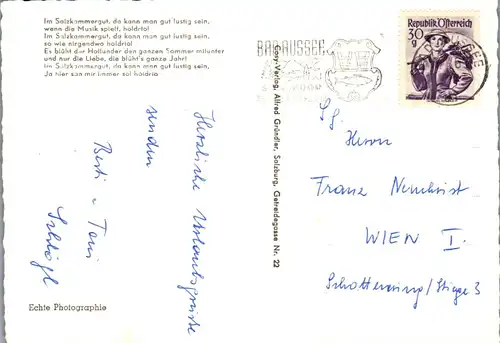 Im Salzkammergut, da kann man gut lustig sein,
wenn die Musik spielt, holdrio!
Im Salzkammergut, da kann man gut lustig sein,
so wie nirgendwo holdrio!
Es blüht der Hollunder den ganzen Sommer mitunter
und nur die Liebe, die blüht's ganze Jahr!
Im Salzkammergut, da kann man gut lustig sein,
Ja hier san mir immer so! holdrio
Herzliche Urlaubsgrüsse
senden
Berti u Toni
Echte Photographie
Cosy-Verlag, Alfred Gründler, Salzburg, Getreidegasse Nr. 22
BAD AUSSEE
Republik Österreich
30
g
Herrn
Franz Neuhrist
WIEN I.
Schottenring/Stiege 3